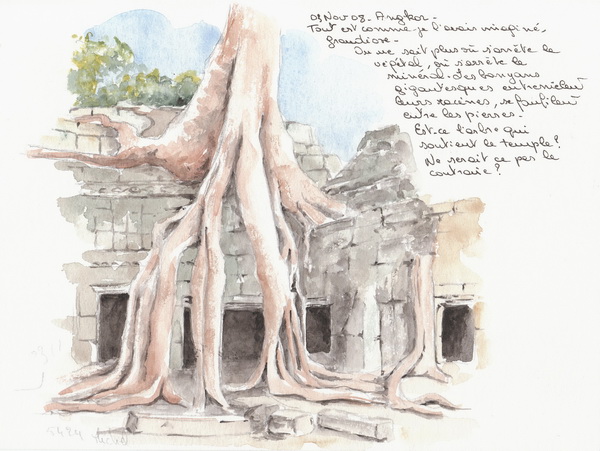 03 Nov 08 - Angkor -
Tout est comme je l'avais imaginé,
grandiose -
On ne sait plus où s'arrête le
végétal, où s'arrête le
minéral. Les banyans
gigantesques entremêlent
leurs racines, se faufilent
entre les pierres -
Est-ce l'arbre qui
soutient le temple ?
Ne serait ce pas le
contraire ?